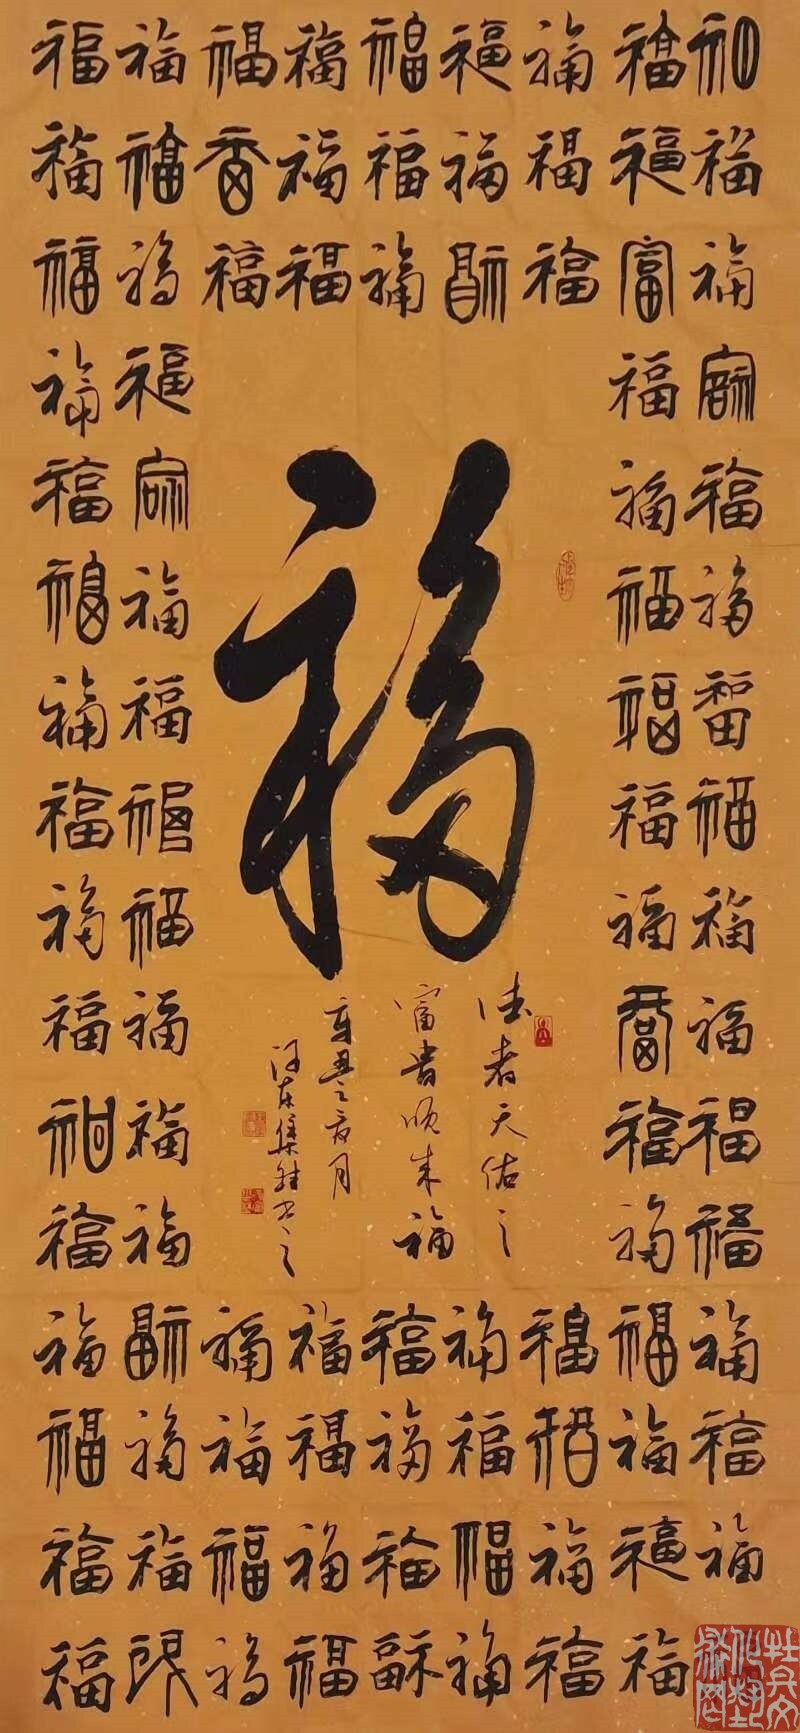 福福福福福福福福福福福福福福福
福福福福福福福福福福福福福福福福
福福福
福福福
福福福
福福福
福福福
福
德者天佑之
富贵顺来福
辛丑之月
书之
福福福福
福福福福
福福福福
福福福福
福福福福
福福福福福福福福福福福福福福福福
福福福福福福福福福福福福福福福福